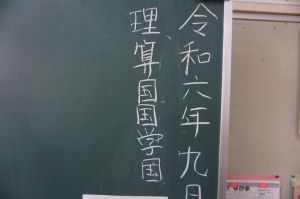 令和六年九日
理、算国国学国